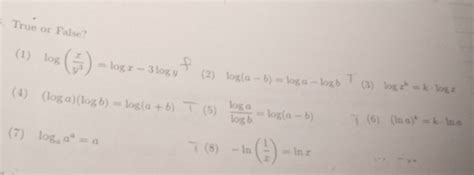 True or False?
(1) log (x/y³) = log x − 3 log y (2) log(a − b) = log a − log b T (3) log xᵏ = k · log x
(4) (log a)(log b) = log(a + b) T (5) log a / log b = log(a − b) T (6) (ln a)ᵏ = k · ln a
(7) logₐ aᵃ = a T (8) −ln (1/x) = ln x